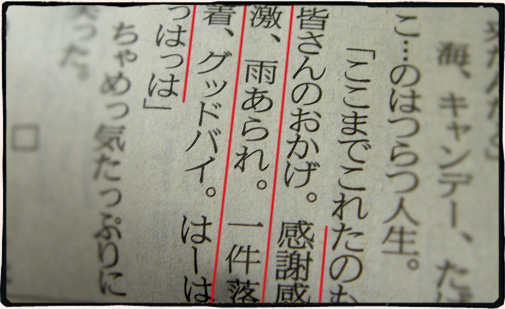 海、キャンデー、た
こ…のはつらつ人生。
「ここまでこれたのも
皆さんのおかげ。感謝感
激、雨あられ。一件落
着、グッドバイ。はーは
っはっは」
ちゃめっ気たっぷりに
笑った。
□